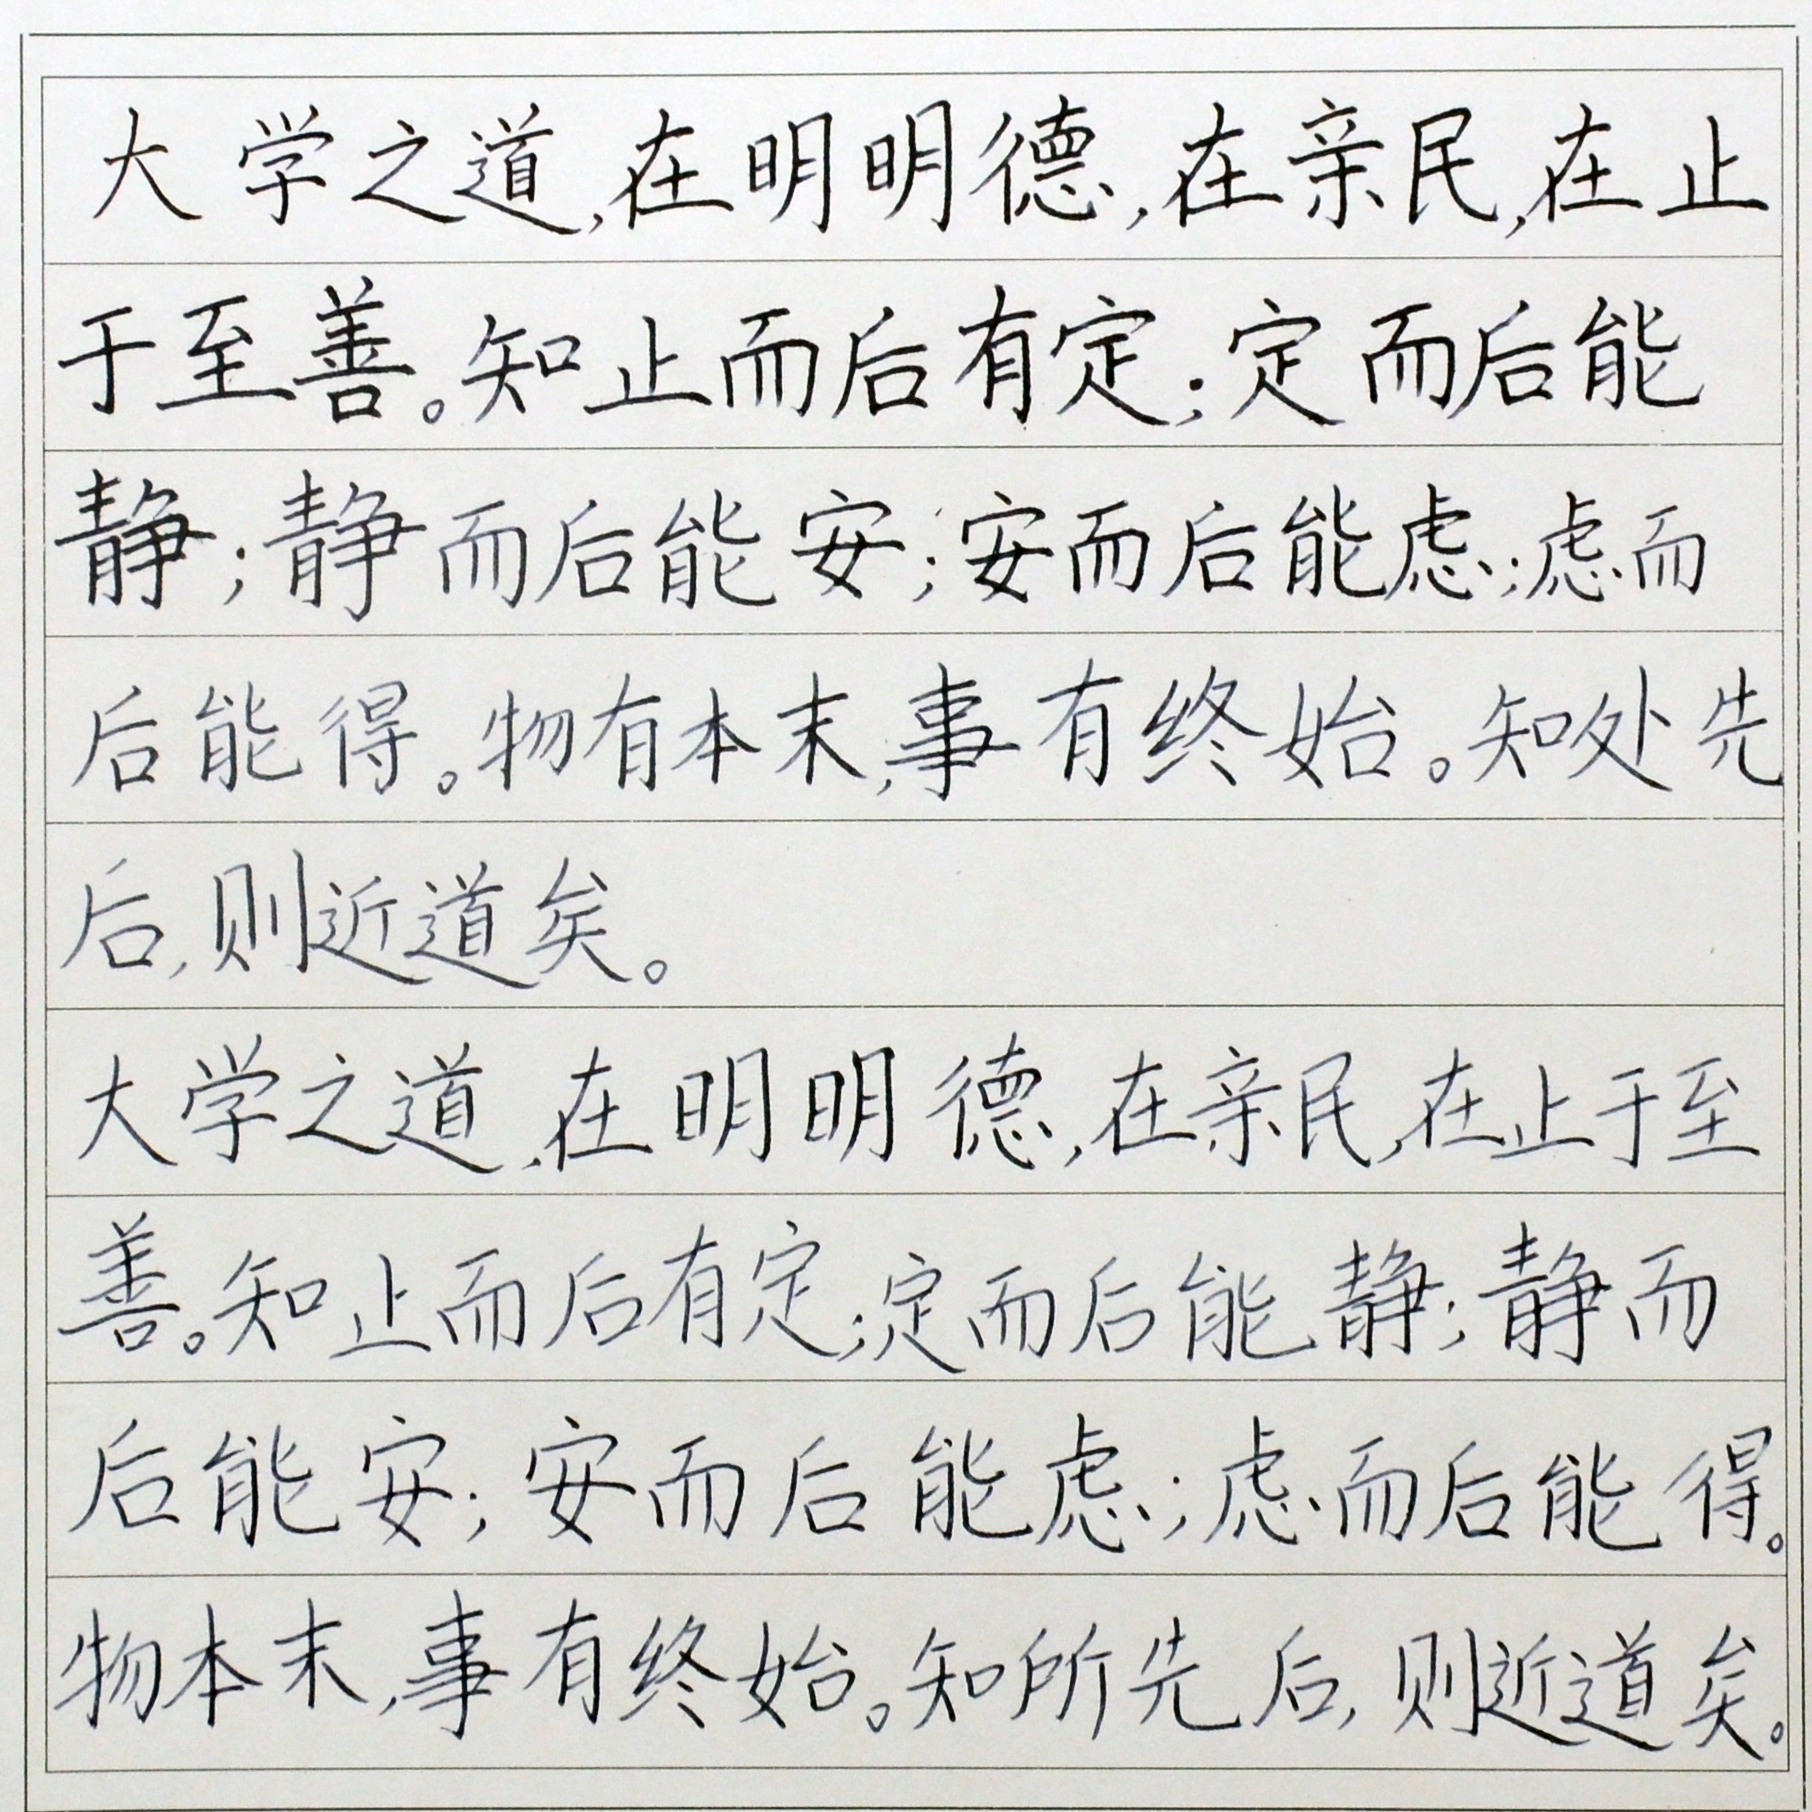 大学之道,在明明德,在亲民,在止
于至善。知止而后有定;定而后能
静;静而后能安;安而后能虑;虑而
后能得。物有本末,事有终始。知处先
后,则近道矣。
大学之道,在明明德,在亲民,在止于至
善。知止而后有定;定而后能静;静而
后能安;安而后能虑;虑而后能得。
物本末,事有终始。知所先后,则近道矣。